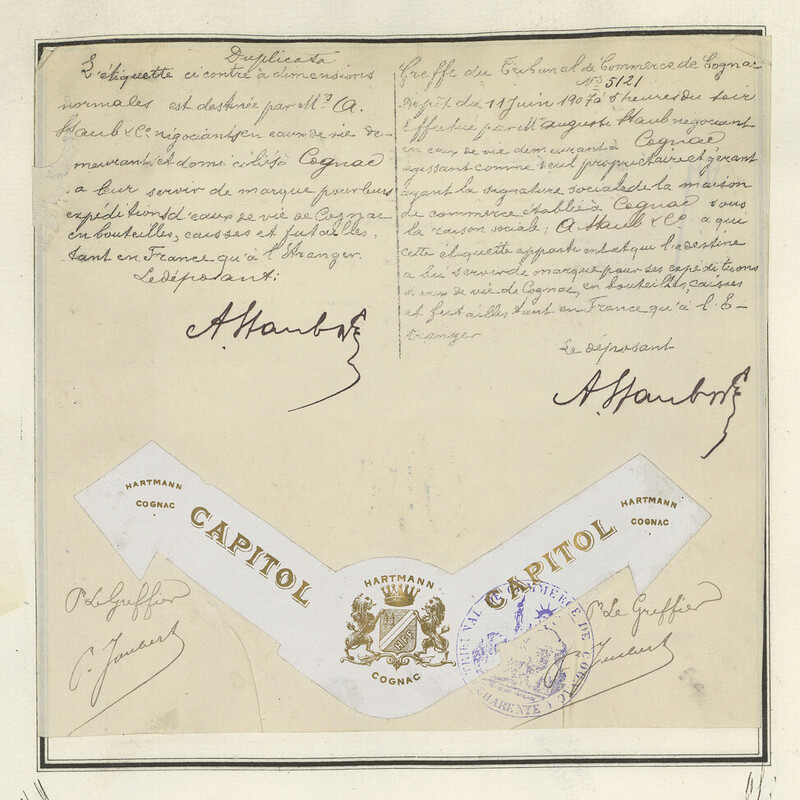 Duplicata
L'étiquette ci contre à dimensions
normales est destinée par Mrs A.
Staub & Co négociants en eaux de vie de-
meurant et domiciliés à Cognac
a leur servir de marque pour leurs
expéditions d'eaux de vie de Cognac
en bouteilles, caisses et futailles,
tant en France qu'à l'Etranger.
Le déposant:
A. Staub & Co
Greffe du Tribunal de Commerce de Cognac
No 5121
Dépôt du 11 Juin 1907 à 5 heures du soir
Effectué par Mr Auguste Staub négociant
en eaux de vie demeurant à Cognac
agissant comme seul propriétaire et gérant
ayant la signature sociale de la maison
de commerce établie à Cognac sous
la raison sociale: A. Staub & Co. a qui
cette étiquette appartient et qui la destine
a lui servir de marque pour ses expéditions
d'eaux de vie de Cognac, en bouteilles, caisses
et futailles tant en France qu'à l'E-
tranger
Le déposant
A. Staub & Co
HARTMANN
COGNAC
CAPITOL
HARTMANN
COGNAC
CAPITOL
HARTMANN
COGNAC
P. Le Greffier
P. Joubert
P. Le Greffier
Joubert
TRIBUNAL DE COMMERCE DE COGNAC
CHARENTE